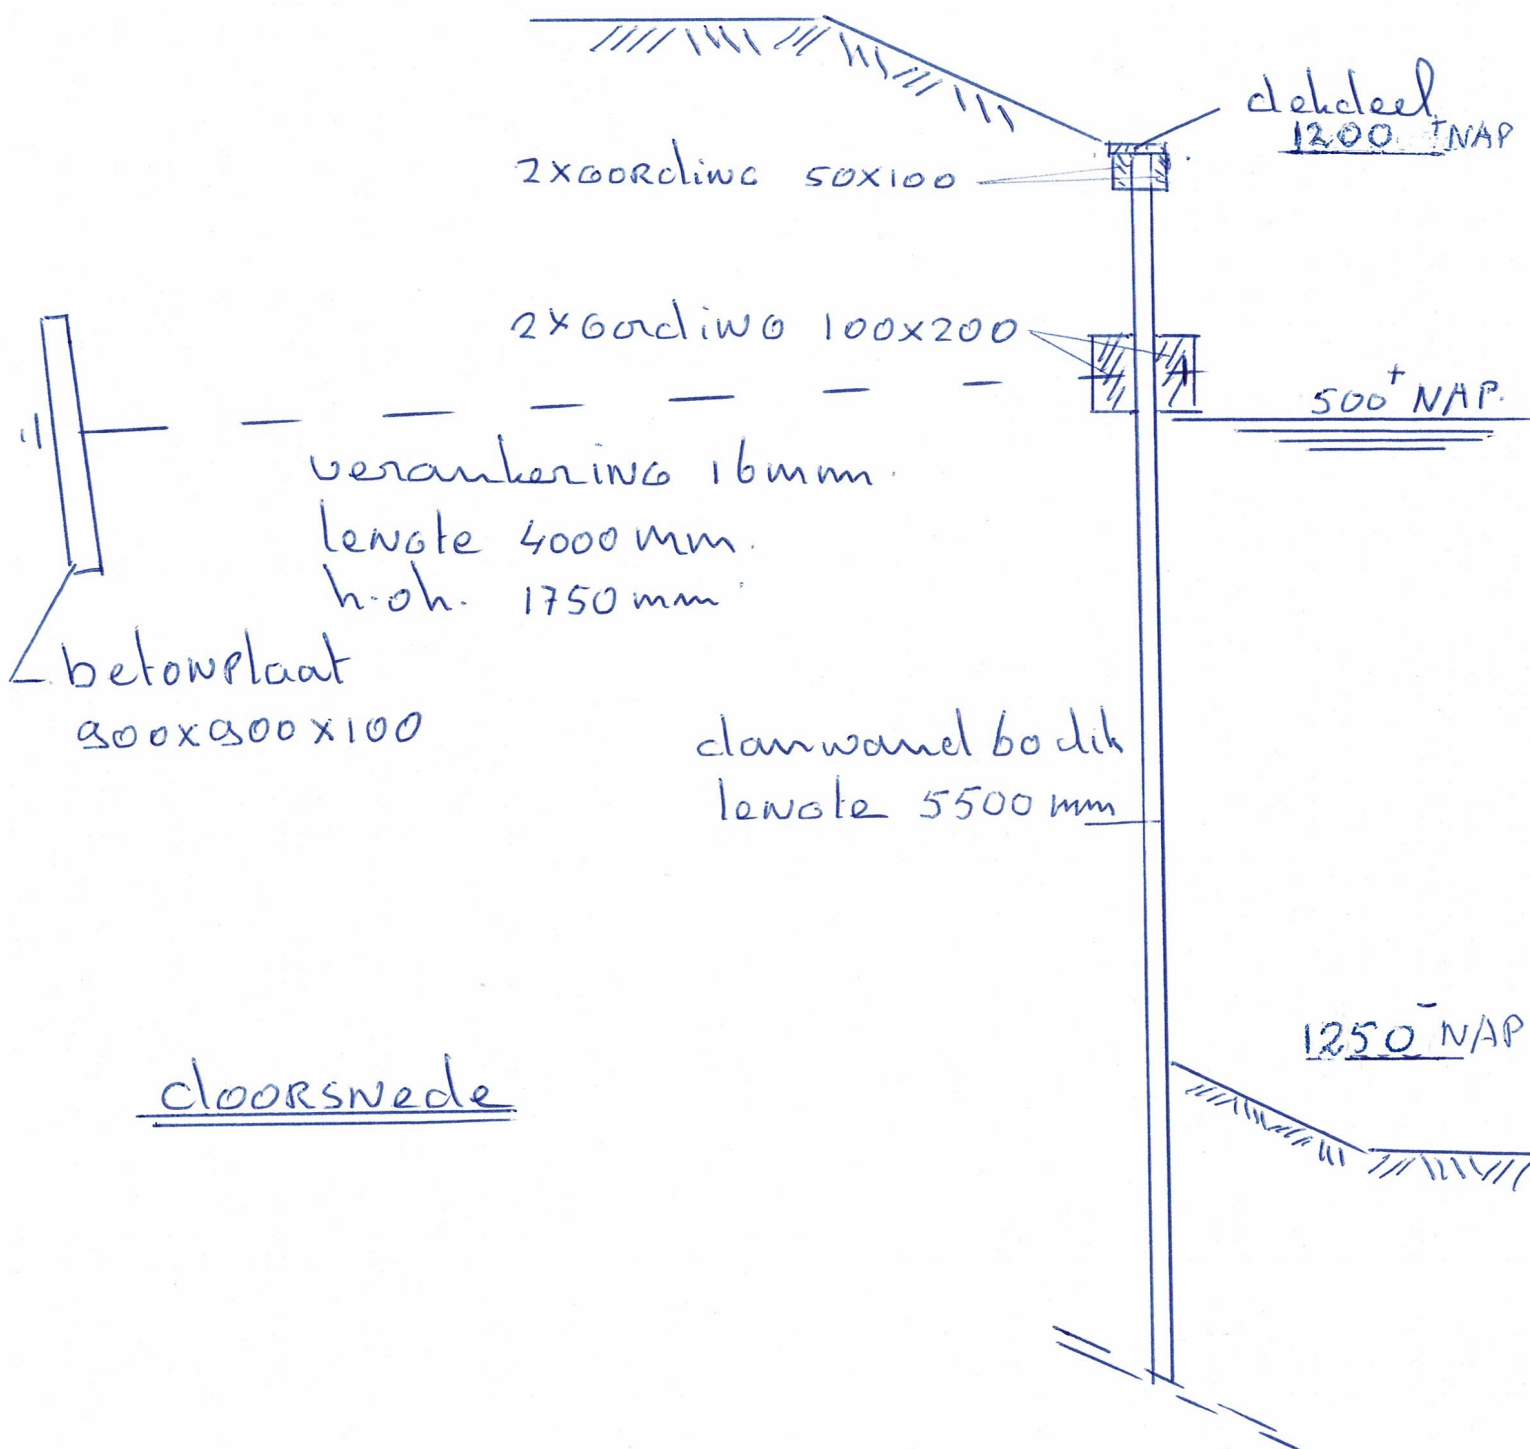 dekdeel
1200 + NAP
2x GORDiNG 50x100
2x GordiNG 100x200
500+ NAP.
verankeriNG 16mm.
leNGte 4000 mm.
h.oh. 1750 mm
betoNplaat
900x900x100
damwand 60 dik
leNGte 5500 mm
1250- NAP
dOORSNede